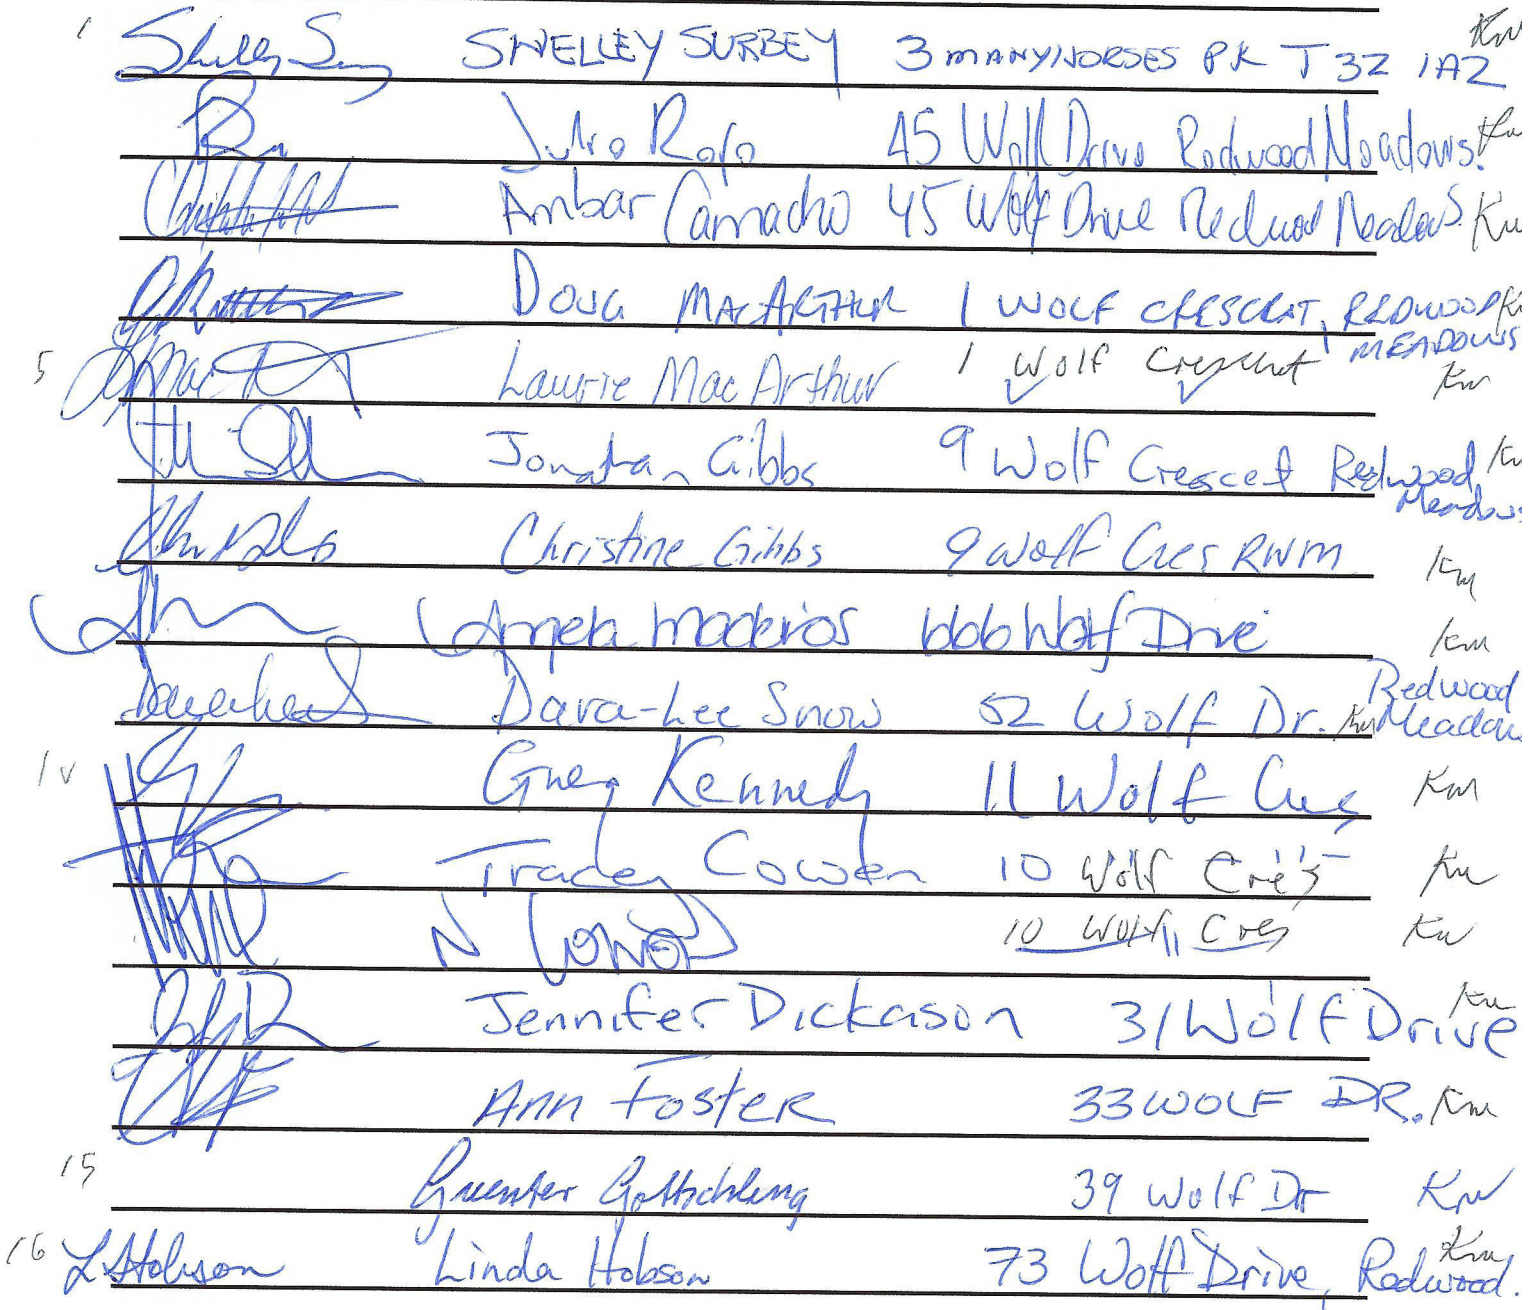 1 Shelley SHELLEY SURBEY 3 MANYHORSES PK T3Z 1A2 KM
Julio Rojo 45 Wolf Drive Redwood Meadows. KM
Ambar Camacho 45 Wolf Drive Redwood Meadows. KM
DOUG MACARTHUR 1 WOLF CRESCENT, REDWOOD MEADOWS
5 LMac Laurie MacArthur 1 Wolf Crescent KM
Jonathan Gibbs 9 Wolf Crescet Redwood Meadows KM
Christine Gibbs 9 Wolf Cres RWM KM
Angela Madeiros Wolf Drive KM
Dara-Lee Snow 52 Wolf Dr. Redwood Meadows KM
10 Greg Kennedy 11 Wolf Cres KM
Tracey Cowen 10 Wolf Cres KM
N Cowen 10 Wolf Cres KM
Jennifer Dickason 31 Wolf Drive KM
Ann Foster 33 WOLF DR. KM
15 Guenter Gottschling 39 Wolf Dr KM
16 L Hobson Linda Hobson 73 Wolf Drive, Redwood. KM